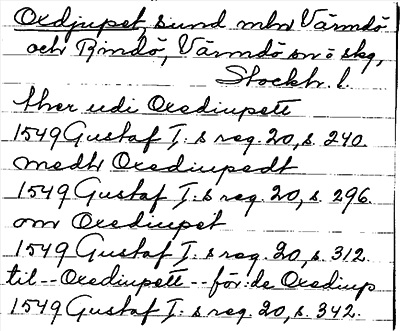 Oxdjupet, sund mln Värmdö
och Rindö, Värmdö sn o skg,
Stockh. l.
ther udi Oxediupett
1549 Gustaf I:s reg. 20, s. 240.
medh Oxediupedt
1549 Gustaf I:s reg. 20, s. 296.
om Oxediupet
1549 Gustaf I:s reg. 20, s. 312.
til -- Oxediupett -- för: de Oxediup
1549 Gustaf I:s reg. 20, s. 342.